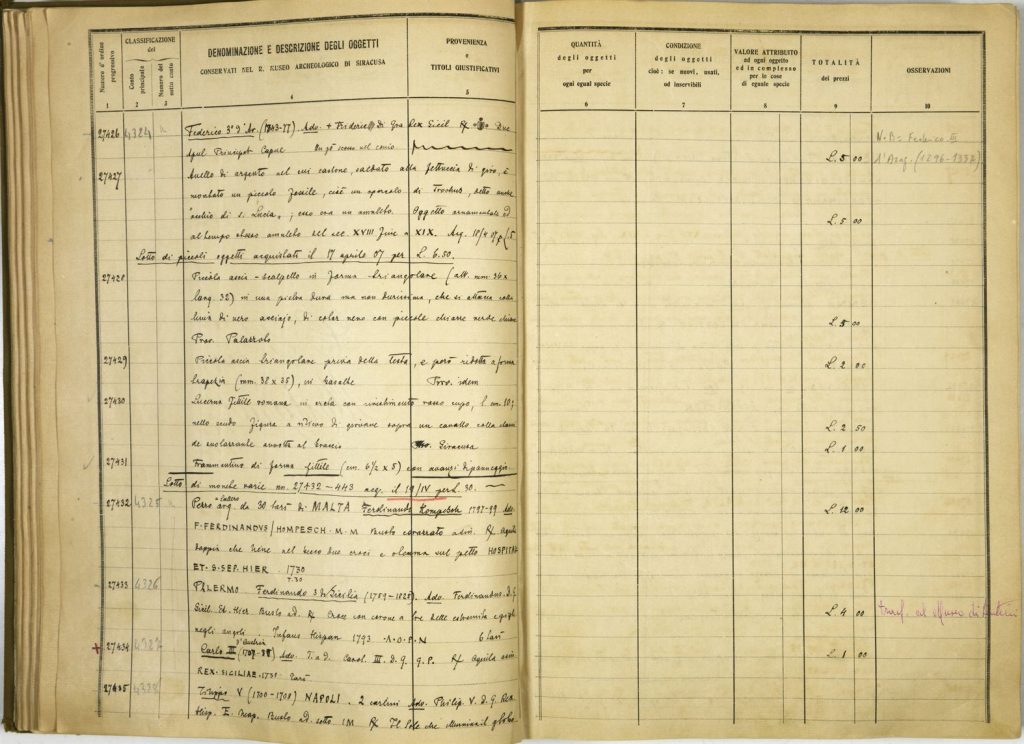 Numero d'ordine progressivo
CLASSIFICAZIONE del
Conto principale
Numero del sotto conto
DENOMINAZIONE E DESCRIZIONE DEGLI OGGETTI
CONSERVATI NEL R. MUSEO ARCHEOLOGICO DI SIRACUSA
PROVENIENZA
e
TITOLI GIUSTIFICATIVI
QUANTITÀ
degli oggetti
per
ogni egual specie
CONDIZIONE
degli oggetti
cioè: se nuovi, usati,
od inservibili
VALORE ATTRIBUITO
ad ogni oggetto
ed in complesso
per le cose
di eguale specie
TOTALITÀ
dei prezzi
OSSERVAZIONI
1 2 3 4 5 6 7 8 9 10
27426 4324 Federico 3° d'Ar. Ado. + Frideric Di Gra Rex Sicil Rf Duc
Apul Principat Capue L. 5 00
N.B= Federico III
d'Arag. (1296-1337)
27427 Anello di argento nel cui castone, saldato alla fettuccia di giro, è
montato un piccolo fossile, cioè un opercolo di Trochus, detto anche
"occhio di s. Lucia"; esso era un amuleto. Oggetto ornamentale ad L. 5 00
al tempo stesso amuleto del sec. XVIII fine a XIX. Acq. 18/4 07
Lotto di piccoli oggetti acquistati il 17 aprile 07 per L. 6.50.
27428 Piccola ascia-scalpello in forma triangolare (alt. mm. 34 x
larg. 32) in una pietra dura ma non durissima, che si attacca colla
di nero acciajo, di color nero con piccole chiazze L. 5 00
Prov. Palazzolo
27429 Piccola ascia triangolare priva della testa, e però ridotta a forma L. 2 00
trapezia (mm. 38 x 35), in basalte Prov. idem
27430 Lucerna fittile romana in creta con rivestimento rosso cupo, l. cm. 10;
nello scudo figura a rilievo di giovane sopra un cavallo colla L. 2 50
al braccio Prov. Siracusa L. 1 00
27431 Frammentino di forma fittile (cm. 6 1/2 x 5) con avanzi di panneggio
Lotto di monete varie nn. 27432-443 acq. il 19/IV per L. 30.
27432 4325 Pezzo arg. da 30 tarì di MALTA Ferdinando Hompesch 1797-99 Ado. L. 12 00
F. FERDINANDVS / HOMPESCH. M. M Busto corazzato a sin. Rf Aquila
doppia che tiene nel becco due croci e stemma sul petto HOSPITAL
ET. S. SEP. HIER 1730
T. 30
27433 4326 PALERMO Ferdinando 3 di Sicilia (1759-1825). Ado. Ferdinandus. D. G
Sicil. Et. Hier Busto ad. Rf Croce con corone a tre delle estremità L. 4 00
negli angoli. Infans Hispan 1793 6 tarì
27434 4327 Carlo III d'Austria Ado. Carol. III. D. G. Rf Aquila L. 1 00
REX. SICILIAE. 1731. Tarì
27435 4328 Filippo V (1700-1708) NAPOLI. 2 carlini Ado. Philip. V. D. G. Rex
Hisp. E. Neap. Busto ad. sotto IM Rf Il Sole che illumina il globo.